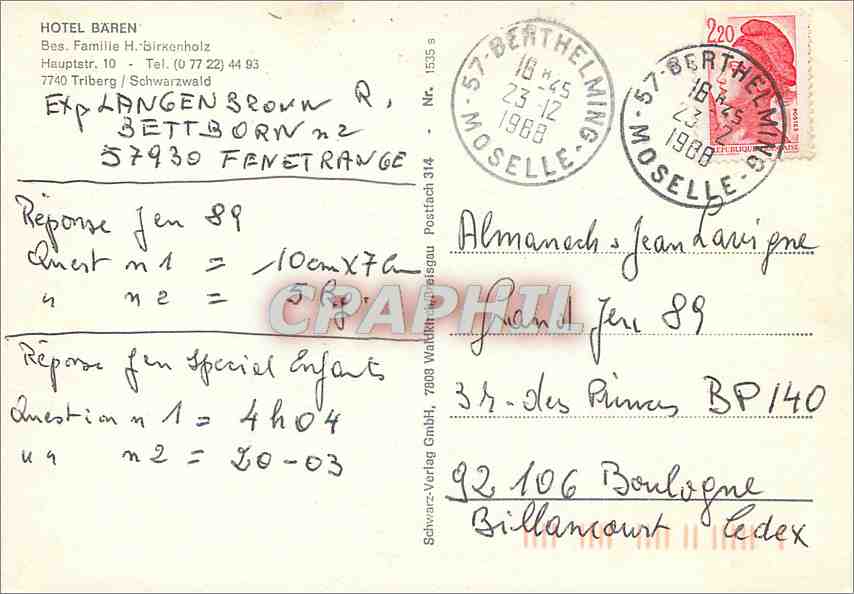 HOTEL BÄREN
Bes. Familie H. Birkenholz
Hauptstr. 10 - Tel. (0 77 22) 44 93
7740 Triberg / Schwarzwald
Exp LANGENBRONN R.
BETTBORN n2
57930 FENETRANGE
Réponse Jeu 89
Quest n1 = 10cm x 7cm
" n2 = 5 Kg.
Réponse Jeu Special Enfants
Question n1 = 4h04
" " n2 = 20-03
Schwarz-Verlag GmbH, 7808 Waldkirch/Breisgau Postfach 314 - Nr. 1535 s
57-BERTHELMING
18 H -45
23-12
1988
MOSELLE
2,20
57-BERTHELMING
18 H -45
23-12
1988
MOSELLE
POSTES
REPUBLIQUE FRANÇAISE
Almanach Jean Lavigne
Grand Jeu 89
3 r - des Princes BP 140
92 106 Boulogne
Billancourt Cedex
CPAPHIL